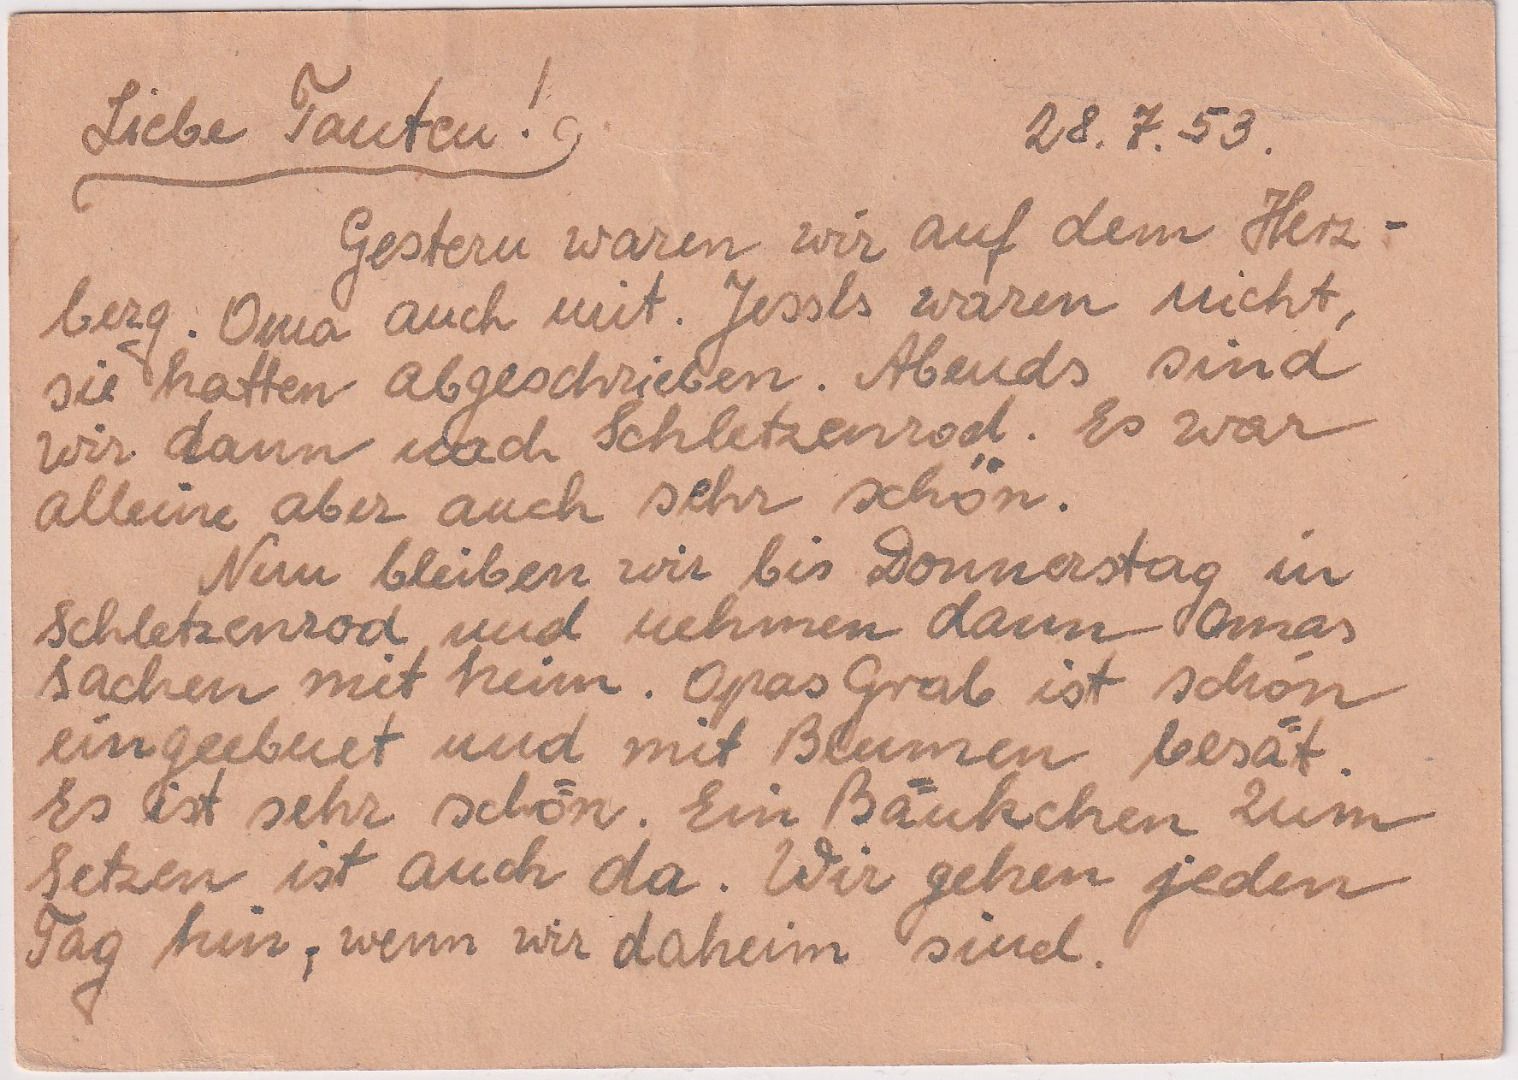 Liebe Tanten! 28.7.53.
Gestern waren wir auf dem Herz-
berg. Oma auch mit. Jessls waren nicht,
sie hatten abgeschrieben. Abends sind
wir dann nach Schletzenrod. Es war
alleine aber auch sehr schön.
Nun bleiben wir bis Donnerstag in
Schletzenrod und nehmen dann Omas
Sachen mit heim. Opas Grab ist schön
eingeebnet und mit Blumen besät.
Es ist sehr schön. Ein Bänkchen zum
Setzen ist auch da. Wir gehen jeden
Tag hin, wenn wir daheim sind.